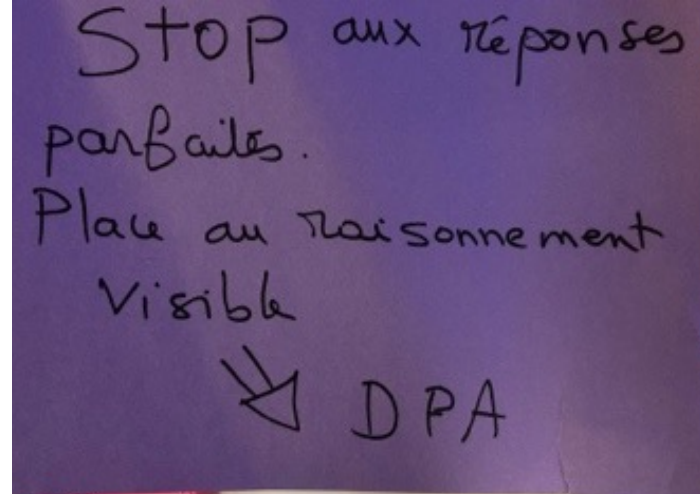 Stop aux réponses
parfaites.
Place au raisonnement
visible
DPA